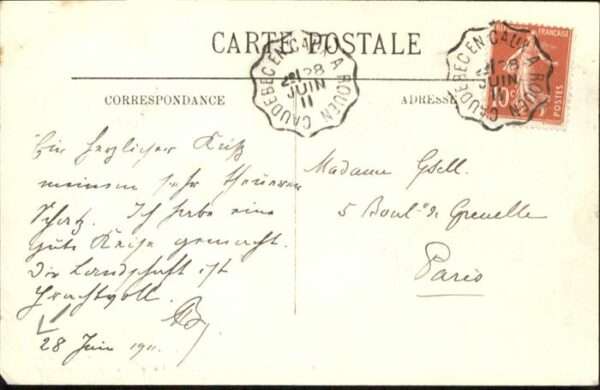 CARTE POSTALE
CORRESPONDANCE
ADRESSE
CAUDEBEC EN CAUX A ROUEN
28
JUIN
11
CAUDEBEC EN CAUX A ROUEN
28
JUIN
11
FRANÇAISE
10c
POSTES
Ein herzlicher Kuß
meinem sehr theueren
Schatz. Ich habe eine
gute Reise gemacht.
Die Landschaft ist
prachtvoll.
28 Juin 1911.
Madame Gsell.
5 Boulд de Grenelle
Paris